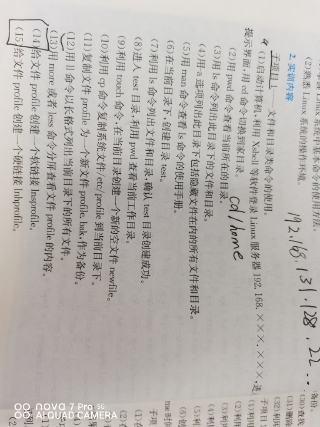 (2)熟悉 Linux 系统的操作环境。
2. 实训内容
子项目 1 文件和目录类命令的使用。
(1)启动计算机,利用 Xshell 等软件登录 Linux 服务器 192.168.×××.×××,进
提示界面,用 cd 命令切换到家目录。
(2)用 pwd 命令查看当前所在的目录。
(3)用 ls 命令列出此目录下的文件和目录。
(4)用-a 选项列出此目录下包括隐藏文件在内的所有文件和目录。
(5)用 man 命令查看 ls 命令的使用手册。
(6)在当前目录下,创建目录 test。
(7)利用 ls 命令列出文件和目录,确认 test 目录创建成功。
(8)进入 test 目录,利用 pwd 查看当前工作目录。
(9)利用 touch 命令,在当前目录创建一个新的空文件 newfile。
(10)利用 cp 命令复制系统文件/etc/profile 到当前目录下。
(11)复制文件 profile 为一个新文件 profile.bak,作为备份。
(12)用 ll 命令以长格式列出当前目录下的所有文件。
(13)用 more 或者 less 命令分屏查看文件 profile 的内容。
(14)给文件 profile 创建一个软链接 lnsprofile。
(15)给文件 profile 创建一个硬链接 lnhprofile。
cd/home
192.168.131.128.22
nova 7 Pro 5G
AI QUAD CAMERA